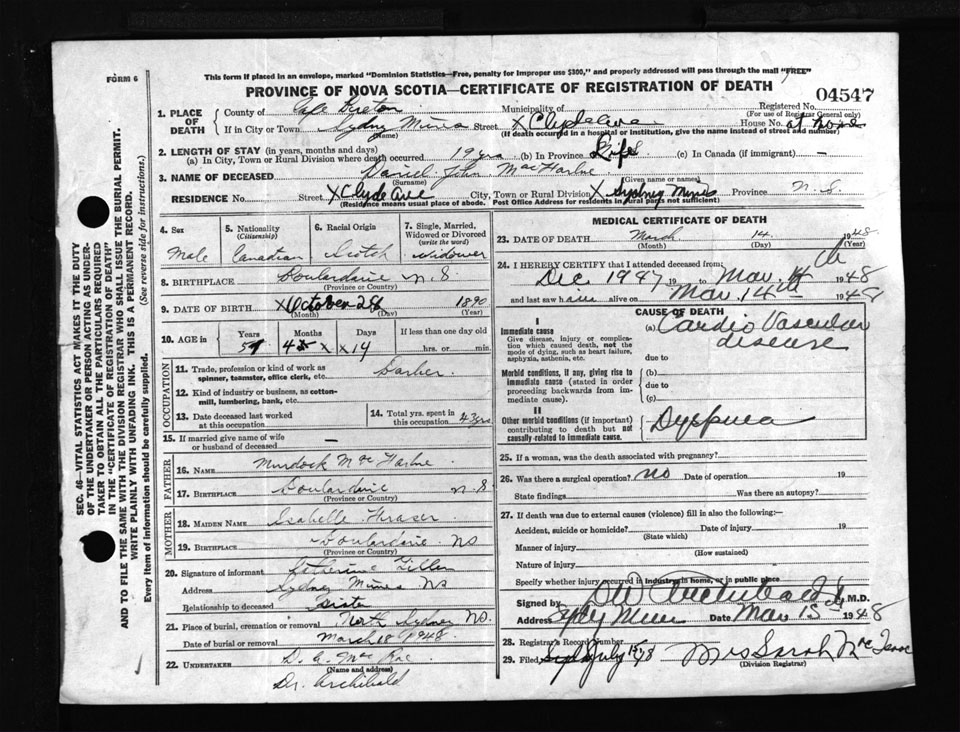 FORM 6
This form if placed in an envelope, marked "Dominion Statistics—Free, penalty for improper use $300," and properly addressed will pass through the mail "FREE"
PROVINCE OF NOVA SCOTIA—CERTIFICATE OF REGISTRATION OF DEATH
04547
1. PLACE OF DEATH
County of Cape Breton Municipality of Registered No.
(For use of Registrar General only)
If in City or Town Sydney Mines Street X Clyde Ave House No. at home
(Name) (If death occurred in a hospital or institution, give the name instead of street and number)
2. LENGTH OF STAY (in years, months and days)
(a) In City, Town or Rural Division where death occurred 19 yrs (b) In Province Life (c) In Canada (if immigrant) —
3. NAME OF DECEASED Daniel John
(Surname) (Given name or names)
RESIDENCE No. Street X Clyde Ave City, Town or Rural Division X Sydney Mines Province N.S.
(Residence means usual place of abode. Post Office Address for residents in rural parts not sufficient)
4. Sex
Male
5. Nationality
(Citizenship)
Canadian
6. Racial Origin
Scotch
7. Single, Married, Widowed or Divorced
(write the word)
Widower
8. BIRTHPLACE Boulardarie N S
(Province or Country)
9. DATE OF BIRTH X October 28 1890
(Month) (Day) (Year)
10. AGE in
Years Months Days If less than one day old
57 4 X X 14 hrs. or min.
OCCUPATION
11. Trade, profession or kind of work as spinner, teamster, office clerk, etc. Barber
12. Kind of industry or business, as cotton-mill, lumbering, bank, etc.
13. Date deceased last worked at this occupation
14. Total yrs. spent in this occupation 43 yrs
15. If married give name of wife or husband of deceased —
FATHER
16. NAME Murdock
17. BIRTHPLACE Boulardarie N.S
(Province or Country)
MOTHER
18. MAIDEN NAME Isabelle Fraser
19. BIRTHPLACE Boulardarie NS
(Province or Country)
20. Signature of informant
Address Sydney Mines NS
Relationship to deceased Sister
21. Place of burial, cremation or removal North Sydney NS.
Date of burial or removal March 18 1948
22. UNDERTAKER D. A. Mac Rae
(Name and address)
Dr. Archibald
MEDICAL CERTIFICATE OF DEATH
23. DATE OF DEATH March 14 1948
(Month) (Day) (Year)
24. I HEREBY CERTIFY that I attended deceased from:
Dec 1947 19 to Mar. 14 th 1948
and last saw him alive on Mar. 14th 1948
CAUSE OF DEATH
I
Immediate cause
Give disease, injury or complication which caused death, not the mode of dying, such as heart failure, asphyxia, asthenia, etc.
(a) Cardio Vascular
disease
due to
Morbid conditions, if any, giving rise to immediate cause (stated in order proceeding backwards from immediate cause).
(b)
due to
(c)
II
Other morbid conditions (if important) contributing to death but not causally related to immediate cause.
Dyspnea
25. If a woman, was the death associated with pregnancy?
26. Was there a surgical operation? no Date of operation 19
State findings Was there an autopsy?
27. If death was due to external causes (violence) fill in also the following:
Accident, suicide or homicide? Date of injury 19
(State which)
Manner of injury
(How sustained)
Nature of injury
Specify whether injury occurred in industry, in home, or in public place
Signed by Archibald M.D.
Address Sydney Mines Date Mar 15 1948
28. Registrar's Record Number
29. Filed July Mrs Sarah
(Division Registrar)
SEC. 46—VITAL STATISTICS ACT MAKES IT THE DUTY OF THE UNDERTAKER OR PERSON ACTING AS UNDERTAKER TO OBTAIN ALL THE PARTICULARS REQUIRED IN THE "CERTIFICATE OF REGISTRATION OF DEATH" AND TO FILE THE SAME WITH THE DIVISION REGISTRAR WHO SHALL ISSUE THE BURIAL PERMIT.
WRITE PLAINLY WITH UNFADING INK. THIS IS A PERMANENT RECORD.
Every item of information should be carefully supplied. (See reverse side for instructions.)